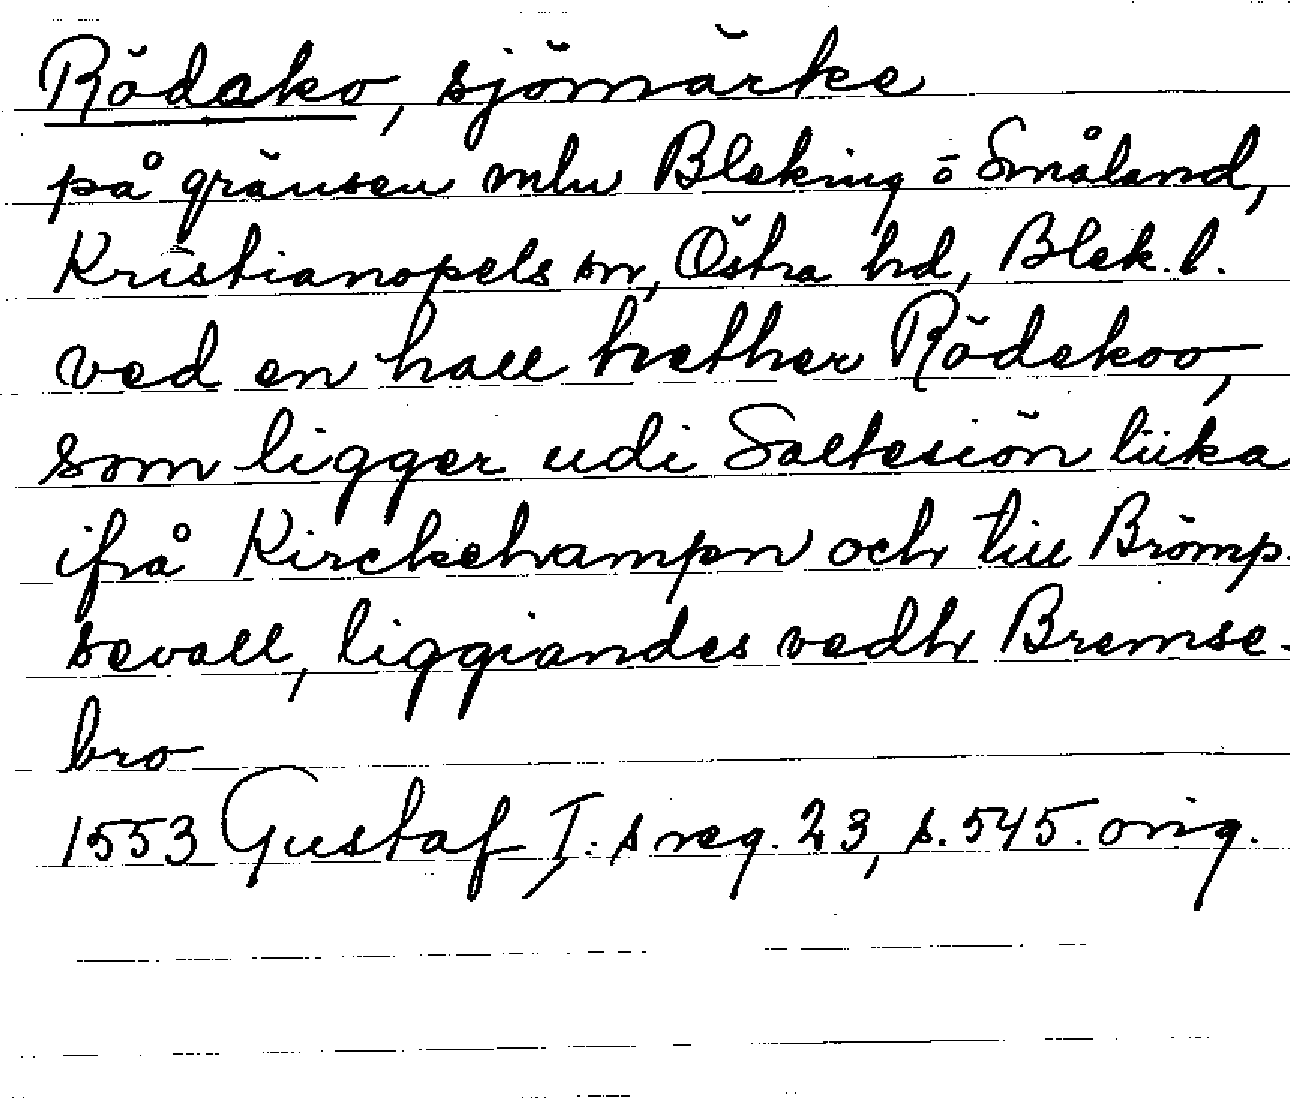 Rödeko, sjömärke
på gränsen mln Bleking o Småland,
Kristianopels sn, Östra hd, Blek. l.
ved en hall hether Rödekoo,
som ligger udi Saltesiön liika
ifrå Kirckehampn och till Brömp-
sevall, liggiandes vedh Bremse-
bro
1553 Gustaf I:s reg. 23, s. 545. orig.